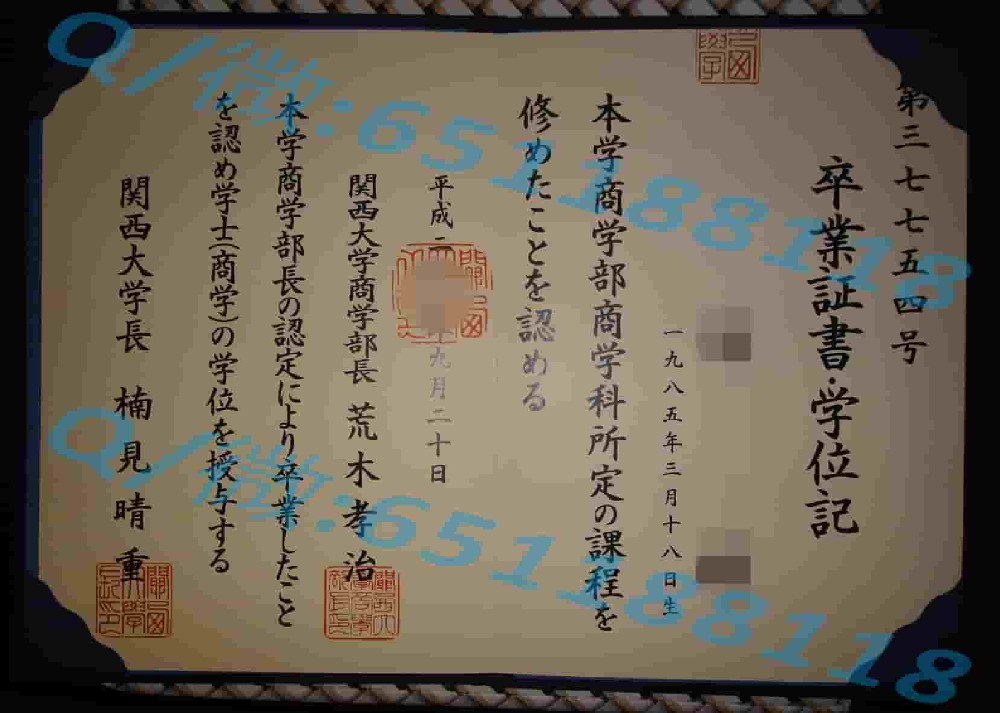 第三七七五四号
卒業証書・学位記
一九八五年三月十八日生
本学商学部商学科所定の課程を
修めたことを認める
平成二 九月二十日
関西大学商学部長 荒木孝治
本学商学部長の認定により卒業したこと
を認め学士(商学)の学位を授与する
関西大学長 楠見晴重
Q/微:65118118
Q/微:65118118